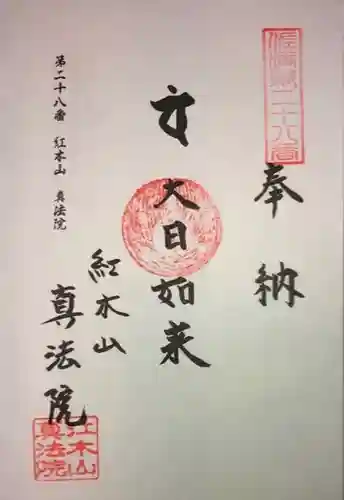 奉納
大日如来
紅木山
真法院
第二十八番 紅本山 真法院
二十八番
真法院